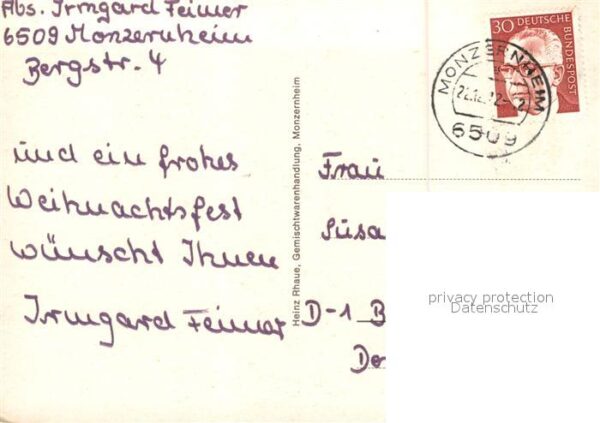 Abs. Irmgard Feimer
6509 Monzernheim
Bergstr. 4
und ein frohes
Weihnachtsfest
wünscht Ihnen
Irmgard Feimer
Heinz Rhaue, Gemischtwarenhandlung, Monzernheim
30 DEUTSCHE BUNDESPOST
MONZERNHEIM
6509
Frau
Susa
D-1 B
Do
privacy protection
Datenschutz